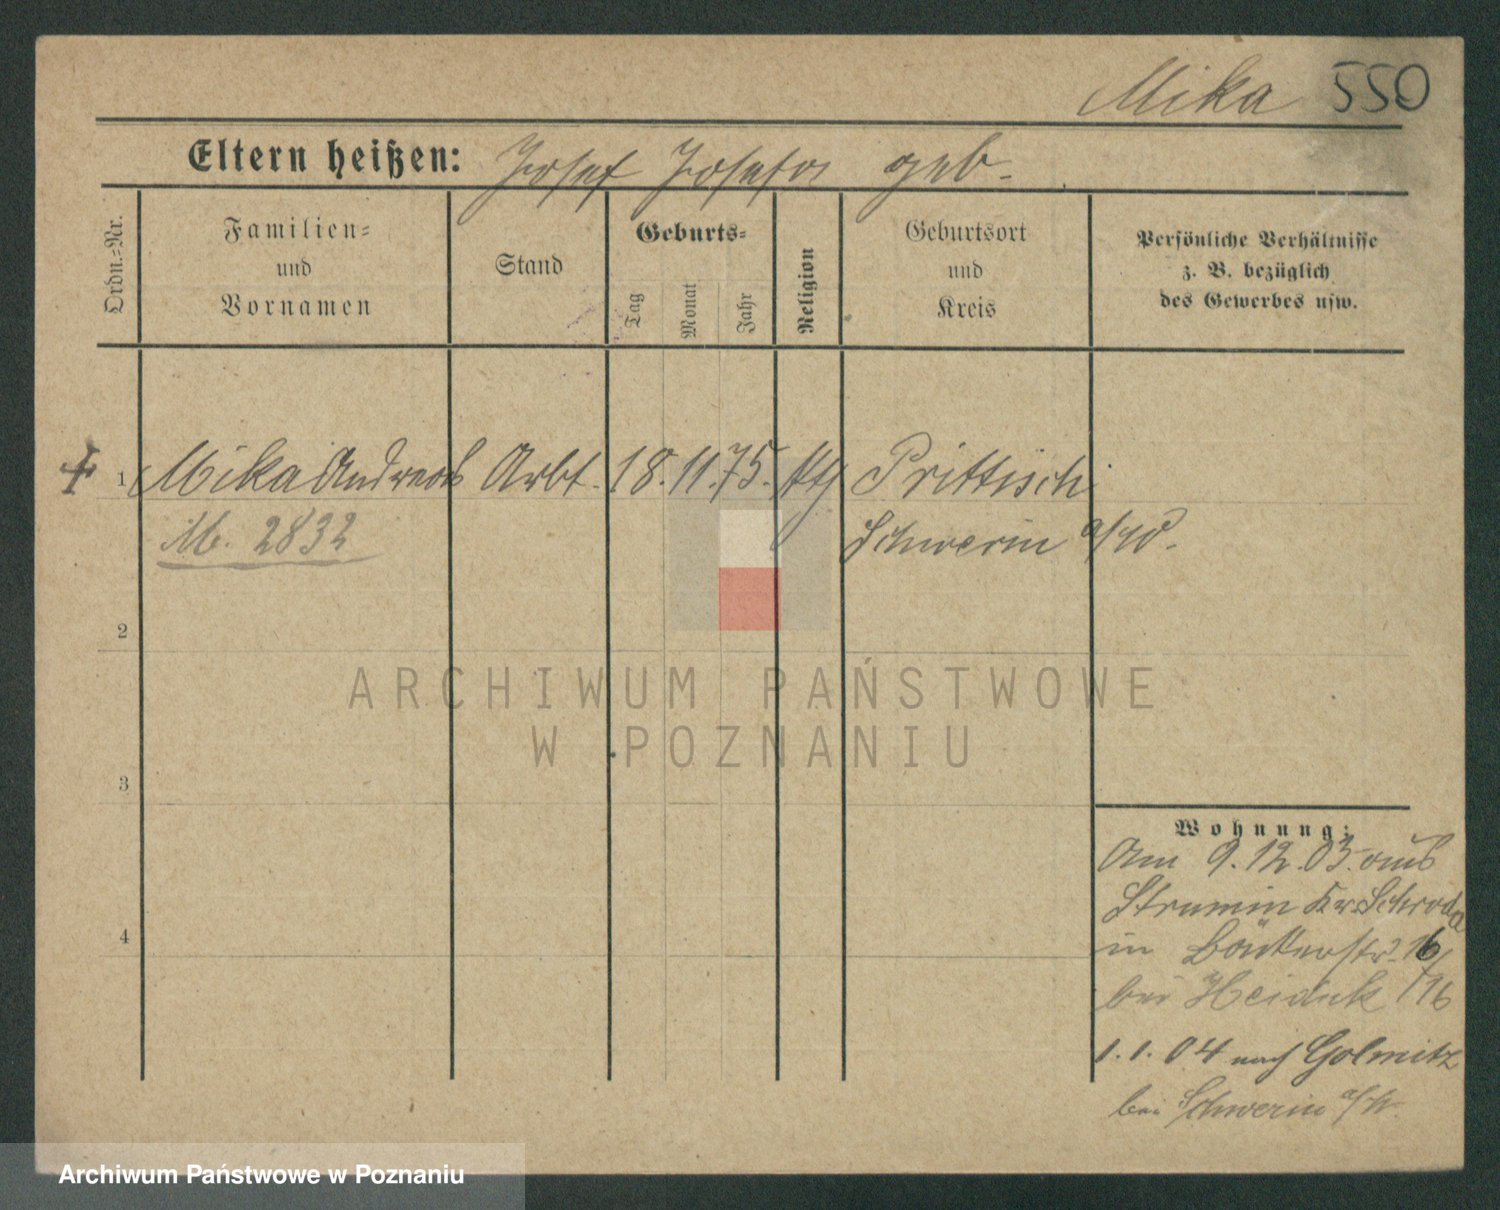 Mika 550
Eltern heißen: Josef Josefa geb.
Ordn.-Nr.
Familien-
und
Vornamen
Stand
Geburts-
Tag
Monat
Jahr
Religion
Geburtsort
und
Kreis
Persönliche Verhältnisse
z. B. bezüglich
des Gewerbes usw.
1 Mika Andreas Arbt. 18. 11. 75. kth Prittisch
M. 2832 Schwerin a/W.
2
ARCHIWUM PAŃSTWOWE
W POZNANIU
3
Wohnung:
Am 9.12.03. aus
Strumin Kr. Schroda
in 16
bei Heiduk /16
4
1.1.04 nach Golmitz
bei Schwerin a/W.
Archiwum Państwowe w Poznaniu